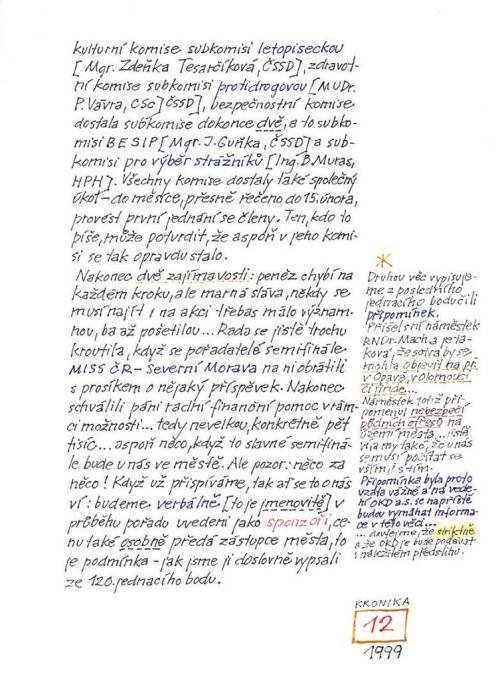 kulturní komise subkomisi letopiseckou
[Mgr. Zdeňka Tesarčíková, ČSSD], zdravot-
ní komise subkomisi protidrogovou [MUDr.
P. Vávra, CSc] ČSSD], bezpečnostní komise
dostala subkomise dokonce dvě, a to subko-
misi BESIP [Mgr. J. Guňka, ČSSD] a sub-
komisi pro výběr strážníků [Ing. B. Muras,
HPH]. Všechny komise dostaly také společný
úkol - do měsíce, přesně řečeno do 15. února,
provést první jednání se členy. Ten, kdo to
píše, může potvrdit, že aspoň v jeho komi-
si se tak opravdu stalo.
Nakonec dvě zajímavosti: peněz chybí na
každém kroku, ale marná sláva, někdy se
musí najít i na akci třebas málo význam-
nou, ba až pošetilou... Rada se jistě trochu
kroutila, když se pořadatelé semifinále
MISS ČR - Severní Morava na ni obrátili
s prosíkem o nějaký příspěvek. Nakonec
schválili páni radní finanční pomoc v rám-
ci možností... tedy nevelkou, konkrétně pět
tisíc... aspoň něco, když to slavné semifiná-
le bude u nás ve městě. Ale pozor: něco za
něco! Když už přispíváme, tak ať se to o nás
ví: budeme verbálně [to je jmenovitě] v
průběhu pořadu uvedeni jako sponzoři, ce-
nu také osobně předá zástupce města, to
je podmínka - jak jsme ji doslovně vypsali
ze 120. jednacího bodu.
Druhou věc vypisuje-
me z posledního
jednacího bodu čili
připomínek.
Přišel s ní náměstek
RNDr. Mach a je ta-
ková, že sotva by se
mohla objevit na př.
v Opavě, v Olomouci
či jinde...
Náměstek totiž při-
pomenul nebezpečí
důlních otřesů na
území města...
Via my také, že u nás
se musí počítat se
vším, i s tím.
Připomínka byla proto
vzata vážně a na vede-
ní OKD a.s. se napříště
budou vymáhat informa-
ce v této věci...
... doufejme, že striktně
a že OKD je bude podávat
v náležitém předstihu.
KRONIKA
12
1999